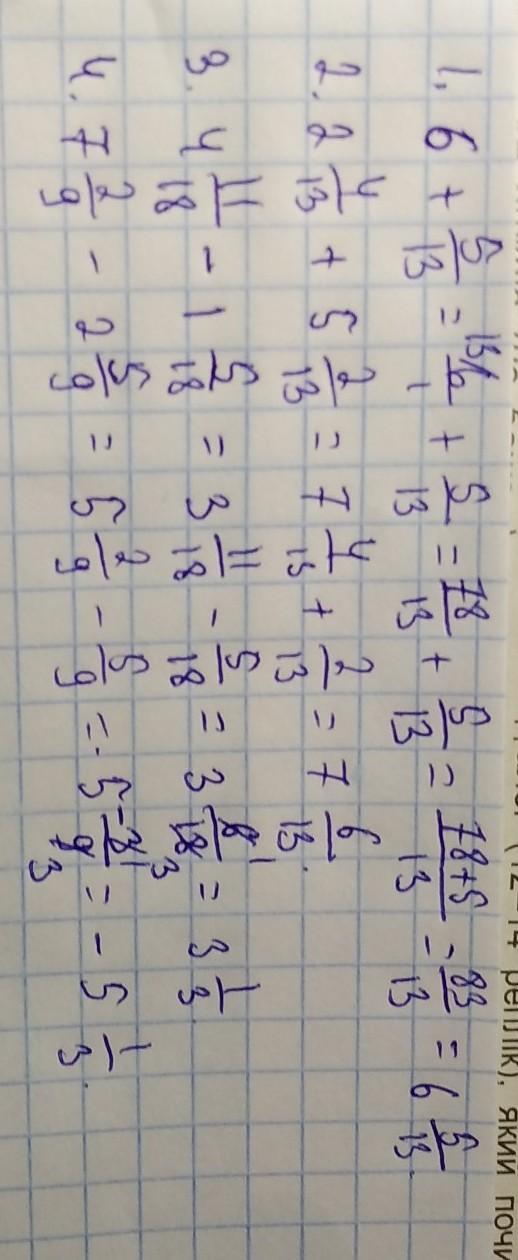 1. 6 + 5/13 = 6/1 + 5/13 = 78/13 + 5/13 = (78+5)/13 = 83/13 = 6 5/13.
2. 2 4/13 + 5 2/13 = 7 4/13 + 2/13 = 7 6/13.
3. 4 11/18 - 1 5/18 = 3 11/18 - 5/18 = 3 6/18 = 3 1/3.
4. 7 2/9 - 2 5/9 = 5 2/9 - 5/9 = - 5 -3/9 = - 5 1/3.
реплік), який